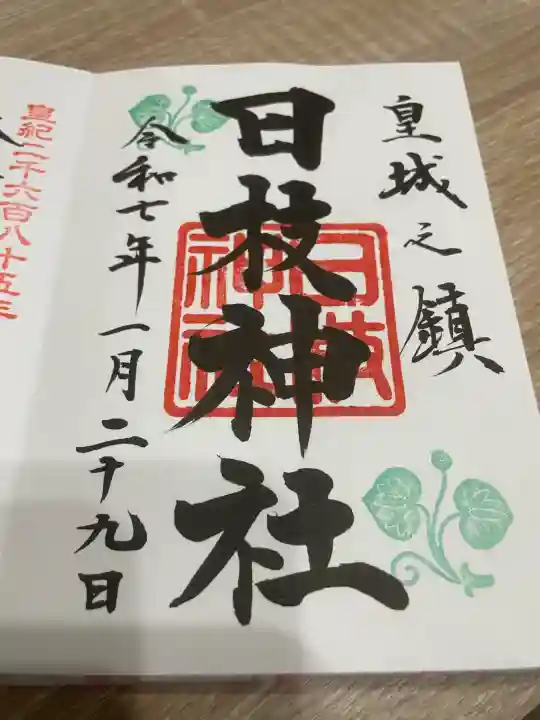 皇城之鎮
日枝神社
日枝神社
令和七年一月二十九日
皇紀二千六百八十五